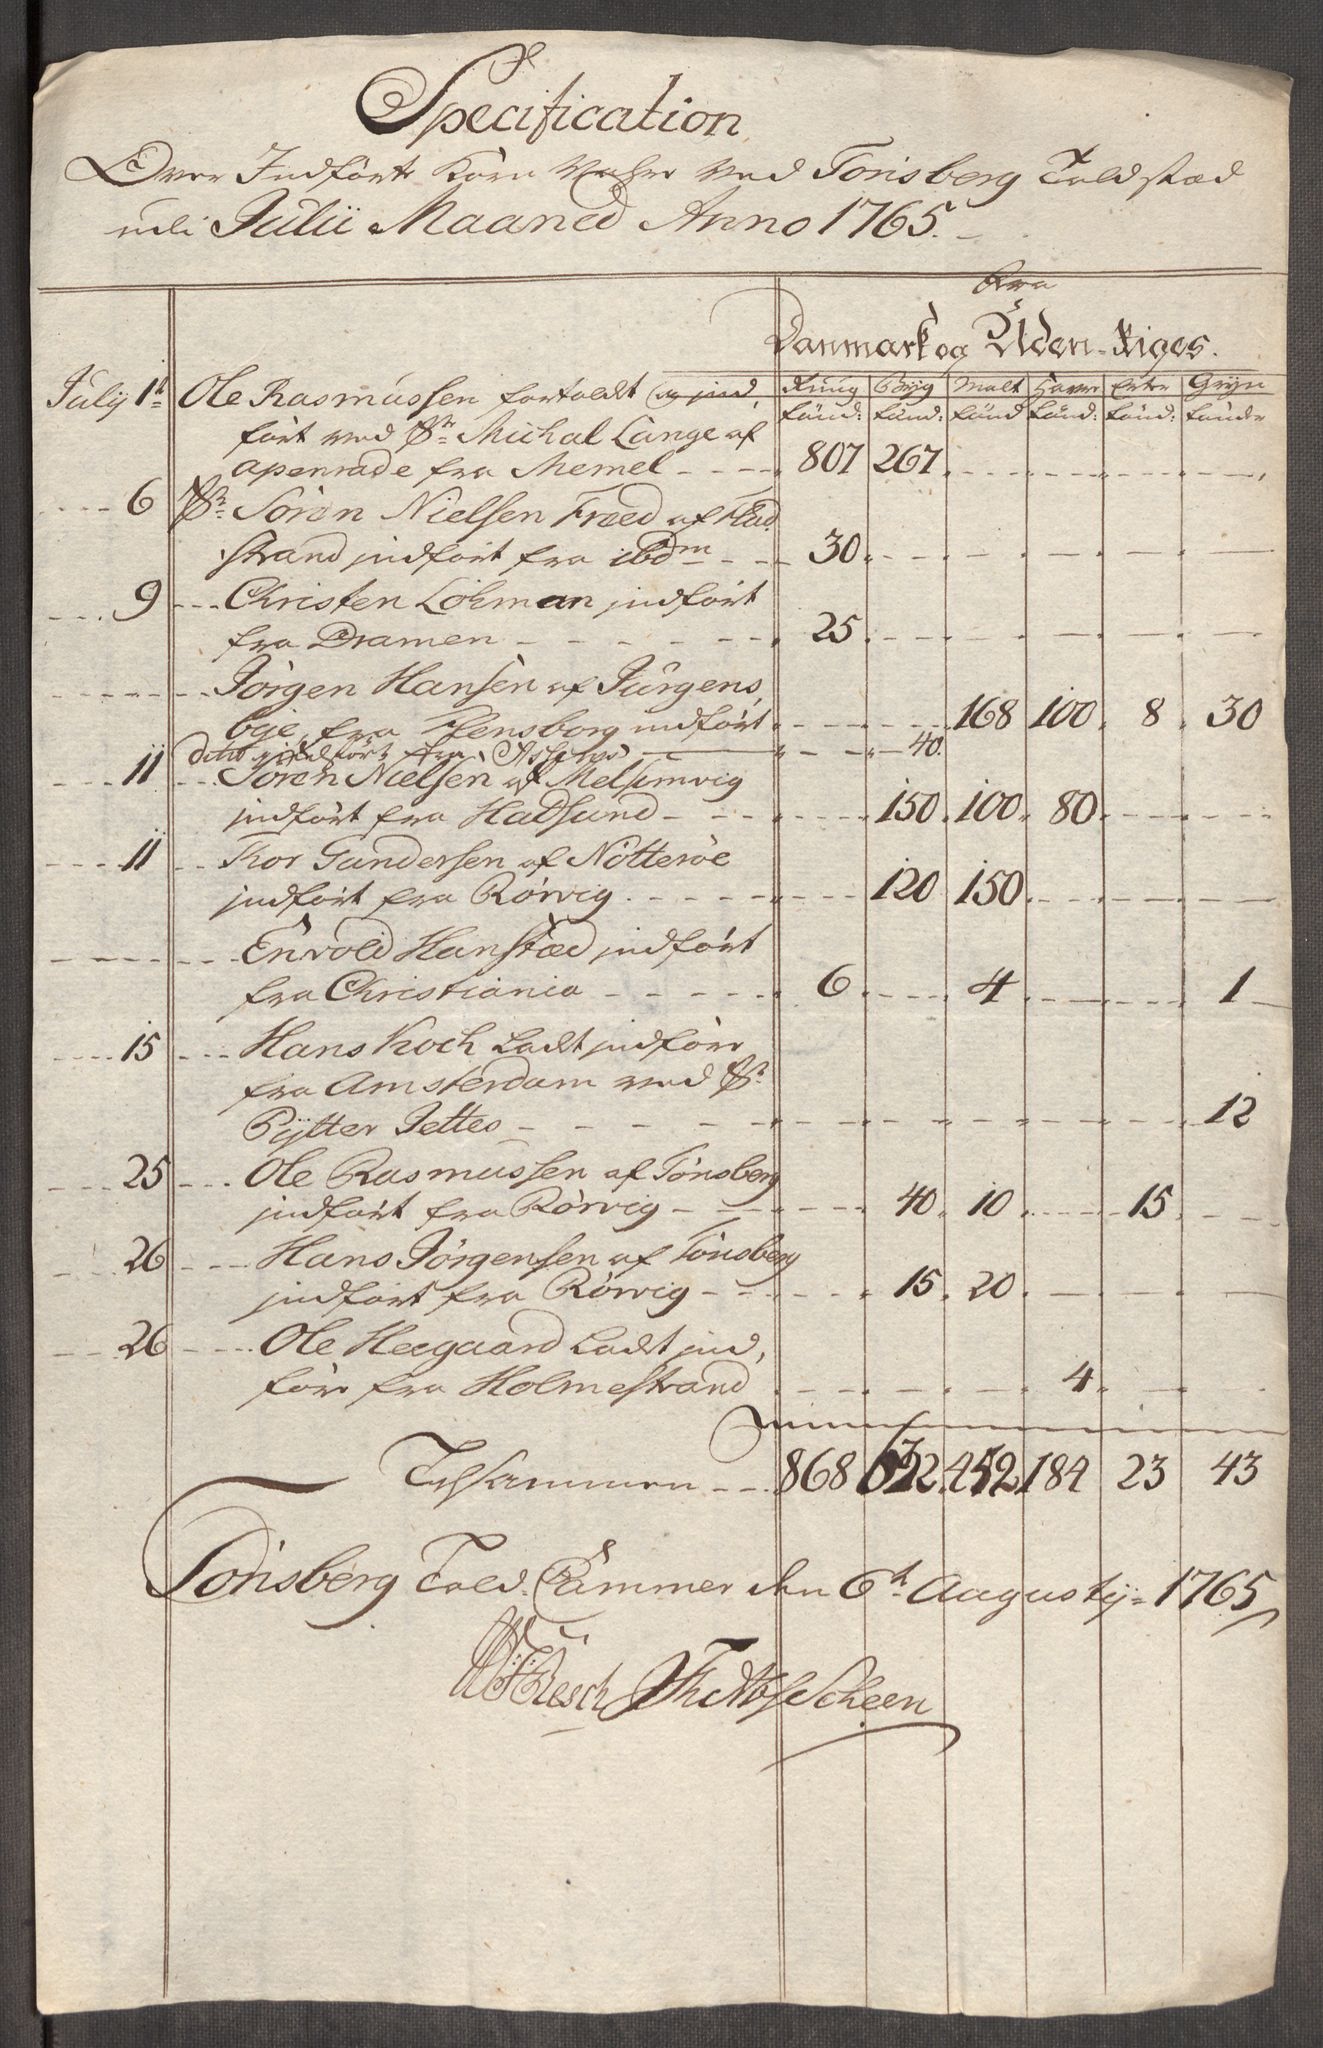 Specification
Over Indförte Korn Vahre Ved Tonsberg Toldstæd
udi Julii Maaned Anno 1765.
fra
Danmark og Uden-Riges.
Rug Byg Malt Havre Erter Gryn
tönd: tönd: tönd tönd: tönd: tönder
July 1t Ole Rasmussen fortoldt og ind,
fört med Skr Michal Lange af
Apenrade fra Memel - - - 807 267
6 Skr Sören Nielsen Freed af Flad
strand indfört fra ibdm - - 30
9 Christen Lohman indfört
fra Dramen - - - - 25
Jörgen Hansen af Jürgens,
bye, fra Flensborg indfört 168 100 8 30
dito indfört fra Assens 40
11 Sören Nielsen af Melsumvig
indfört fra Hadsund - - - 150 100 80
11 Thor Gundersen af Nötteröe
indfört fra Rörvig - - - 120 150
Envold Hanstæd indfört
fra Christiania - - - - 6 4 1
15 Hans Koch Ladt indföre
fra Amsterdam med Skr
Pÿtter Jettes - - - - 12
25 Ole Rasmussen af Tönsberg
indfört fra Rörvig - - - 40 10 15
26 Hans Jörgensen af Tönsberg
indfört fra Rörvig - - - 15 20
26 Ole Heegaard Ladt ind,
före fra Holmestrand 4
Tilsammen - - 868 632 452 184 23 43
Tonsberg Told-Cammer den 6t Augusty 1765
Resch Scheen